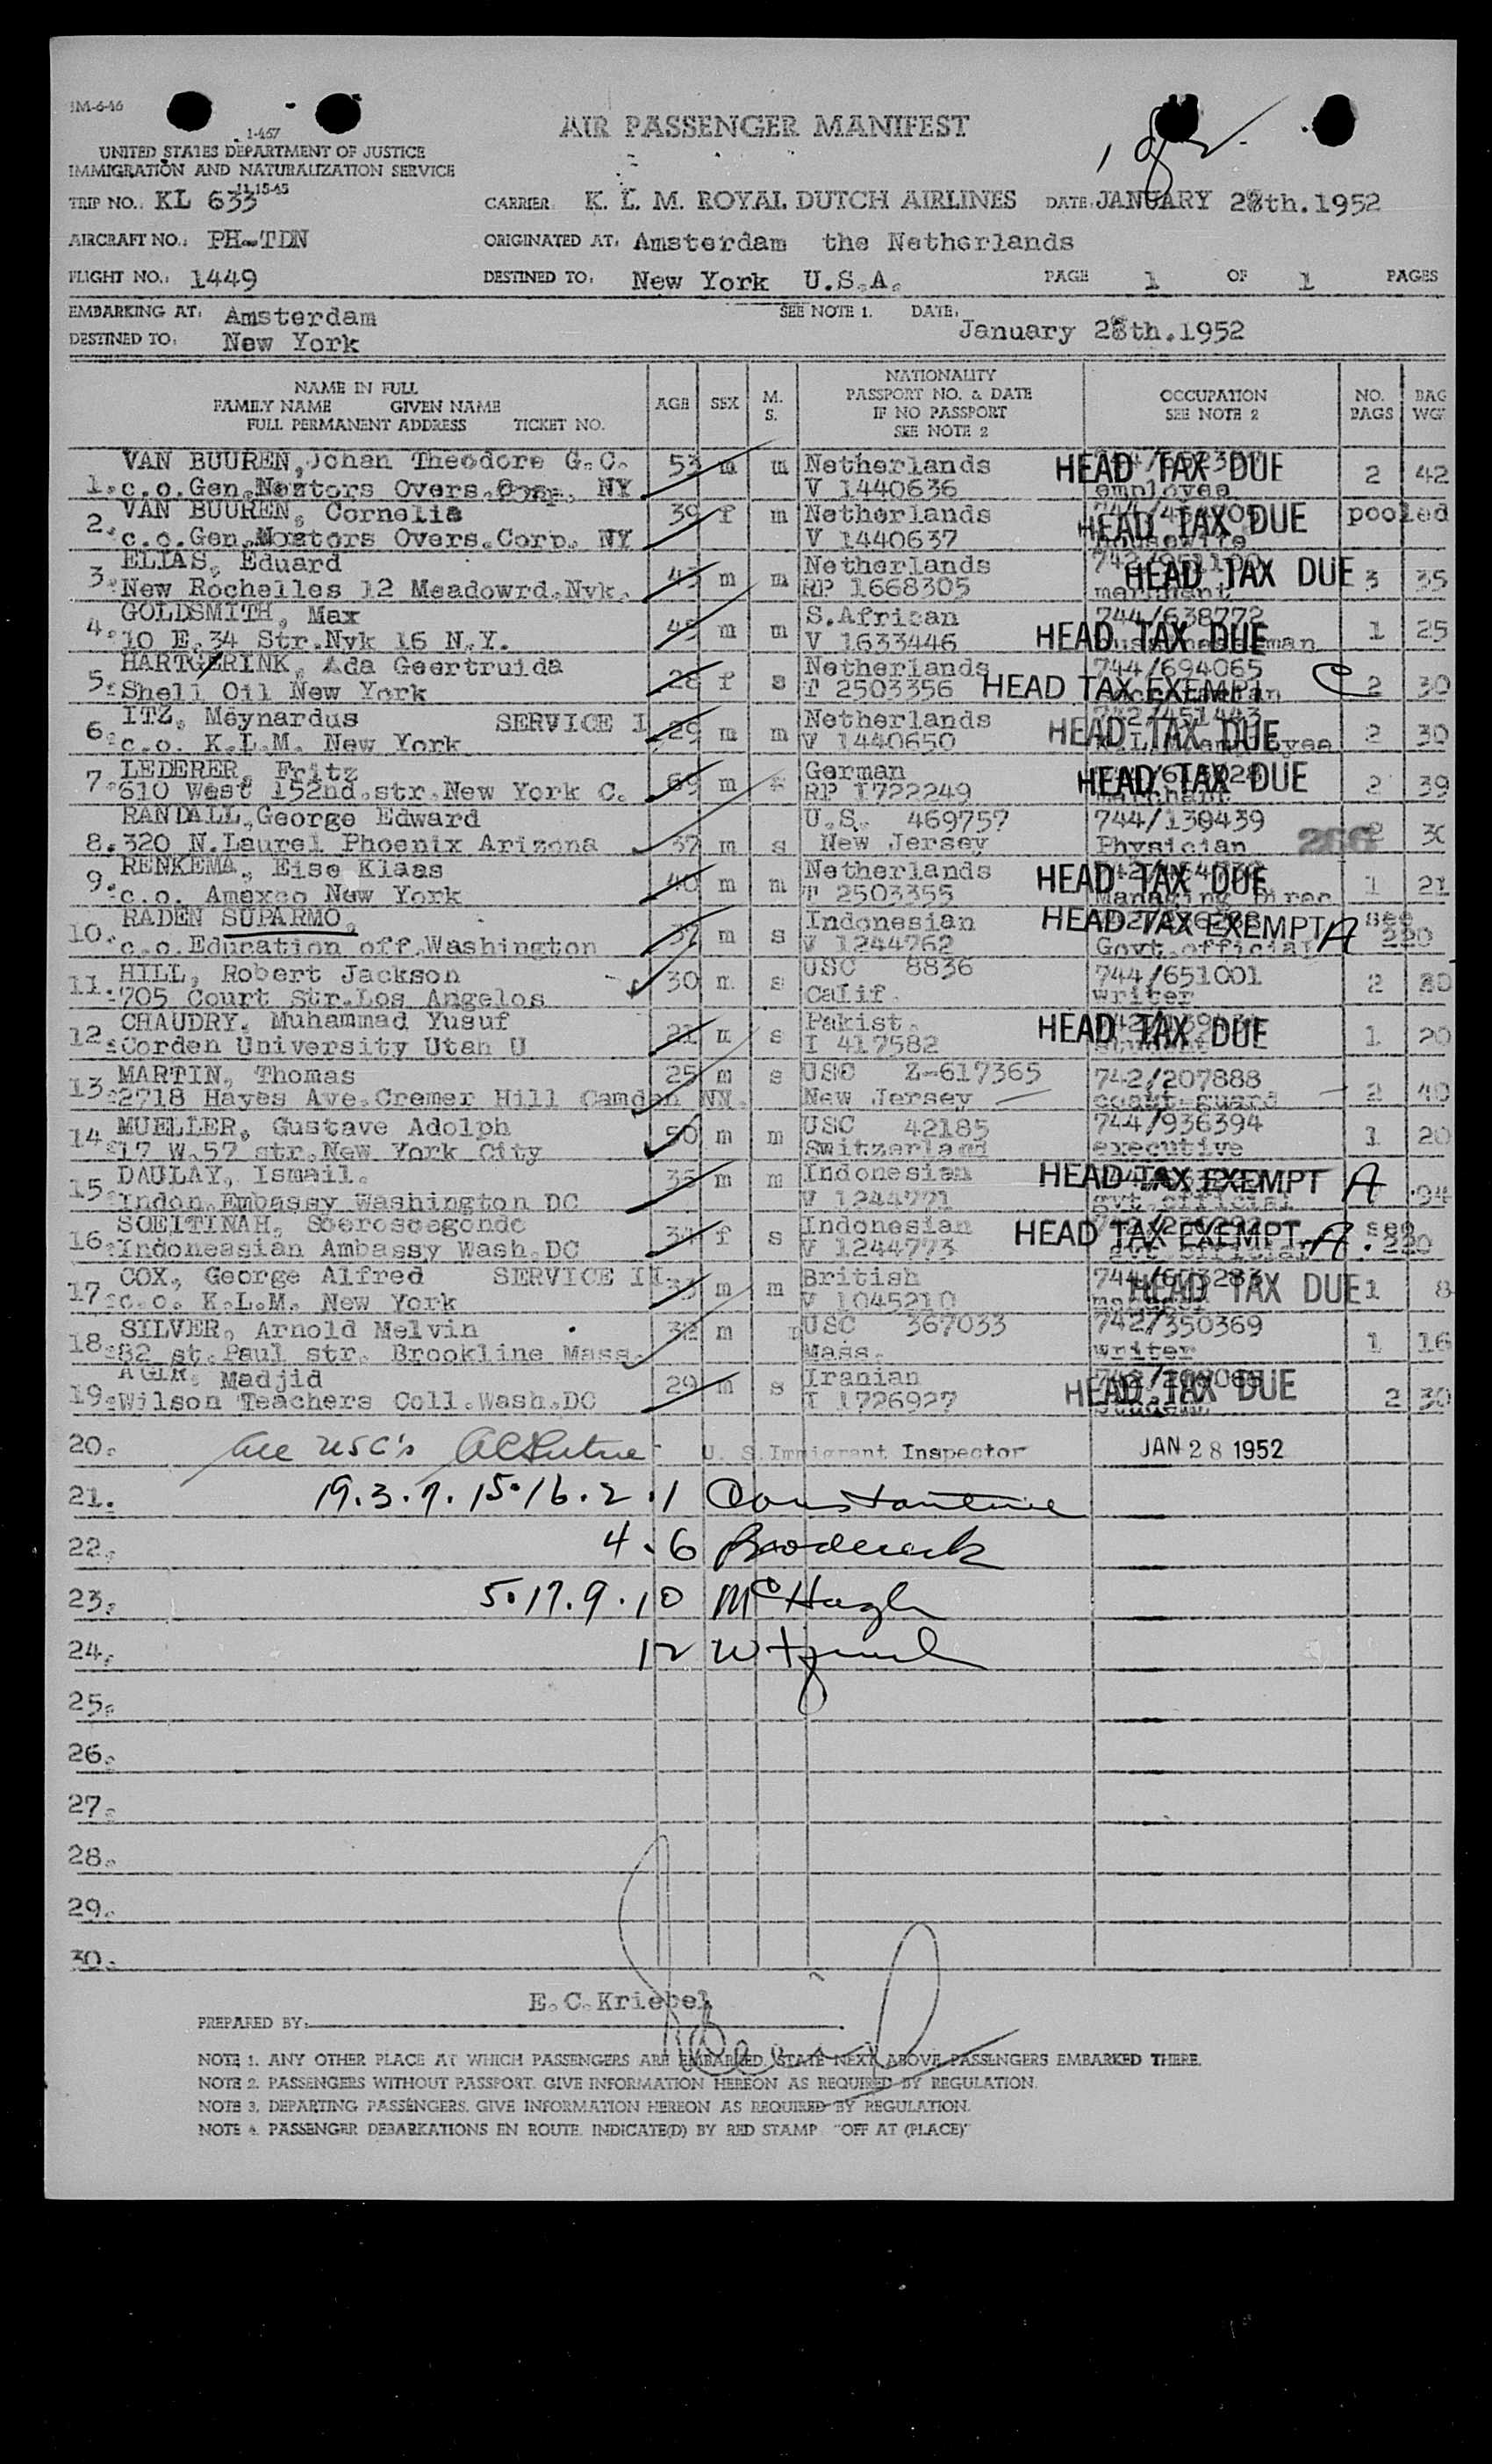 1M-6-46
1-467
UNITED STATES DEPARTMENT OF JUSTICE
IMMIGRATION AND NATURALIZATION SERVICE
11-15-45
AIR PASSENGER MANIFEST
TRIP NO.: KL 633 CARRIER K. L. M. ROYAL DUTCH AIRLINES DATE: JANUARY 28th.1952
AIRCRAFT NO.: PH-TDN ORIGINATED AT: Amsterdam the Netherlands
FLIGHT NO.: 1449 DESTINED TO: New York U.S.A. PAGE 1 OF 1 PAGES
EMBARKING AT: Amsterdam SEE NOTE 1. DATE: January 28th.1952
DESTINED TO: New York
NAME IN FULL
FAMILY NAME GIVEN NAME
FULL PERMANENT ADDRESS TICKET NO.
AGE SEX M. S.
NATIONALITY
PASSPORT NO. & DATE
IF NO PASSPORT
SEE NOTE 2
OCCUPATION
SEE NOTE 2
NO. BAGS
BAG WGT
VAN BUUREN, Johan Theodore G.C. 53 m m Netherlands HEAD TAX DUE 2 42
1. c.o.Gen. Overs. NY V 1440636 employee
VAN BUUREN, Cornelia 39 f m Netherlands HEAD TAX DUE pooled
2. c.o.Gen. Overs.Corp. NY V 1440637 housewife
ELIAS, Eduard 43 m m Netherlands HEAD TAX DUE 3 35
3. New Rochelles 12 Meadowrd.Nyk. RP 1668305 merchant
GOLDSMITH, Max 45 m m S.African 744/638772 1 25
4. 10 E.34 Str.Nyk 16 N.Y. V 1633446 HEAD TAX DUE
HARTGERINK, Ada Geertruida 28 f s Netherlands 744/694065 C 2 30
5. Shell Oil New York T 2503356 HEAD TAX EXEMPT
ITZ, Meynardus SERVICE I 29 m m Netherlands 742/451443 2 30
6. c.o. K.L.M. New York V 1440650 HEAD TAX DUE
LEDERER, Fritz 69 m German HEAD TAX DUE 2 39
7. 610 West 152nd.str.New York C. RP 1722249 merchant
RANDALL, George Edward U.S. 469757 744/130439
8. 320 N.Laurel Phoenix Arizona 37 m s New Jersey Physician 266 2 30
RENKEMA, Eise Klaas 40 m m Netherlands HEAD TAX DUE 1 21
9. c.o. Amexco New York T 2503355 Managing Direc
RADEN SUPARMO, 37 m s Indonesian HEAD TAX EXEMPT A see
10. c.o.Education off.Washington V 1244762 Govt.official 220
HILL, Robert Jackson 30 m s USC 8836 744/651001 2 30
11. 705 Court Str.Los Angelos Calif. writer
CHAUDRY, Muhammad Yusuf 21 m s Pakist. HEAD TAX DUE 1 20
12. Corden University Utah U I 417582 student
MARTIN, Thomas 25 m s USC Z-617365 742/207888 2 40
13. 2718 Hayes Ave.Cremer Hill Camden New Jersey coast-guard
MUELLER, Gustave Adolph 50 m m USC 42185 744/936394 1 20
14. 17 W.57 str.New York City Switzerland executive
DAULAY, Ismail. 35 m m Indonesian HEAD TAX EXEMPT A 94
15. Indon.Embassy Washington DC V 1244771 gvt.official
SOEITINAH, Soeroseegondo 34 f s Indonesian HEAD TAX EXEMPT A. see
16. Indoneasian Ambassy Wash.DC V 1244773 220
COX, George Alfred SERVICE II 33 m m British HEAD TAX DUE 1 8
17. c.o. K.L.M. New York V 1045210
SILVER, Arnold Melvin 32 m USC 367033 742/350369 1 16
18. 82 st.Paul str. Brookline Mass. Mass. writer
AGIR, Madjid 29 m s Iranian HEAD TAX DUE 2 30
19. Wilson Teachers Coll.Wash.DC I 1726927 student
20. All USC's U. S. Immigrant Inspector JAN 28 1952
21. 19.3.7.15.16.2.1 Constantine
22. 4.6 Broderick
23. 5.17.9.10 McHugh
24. 12
25.
26.
27.
28.
29.
30.
E.C.Kriebel
PREPARED BY:
NOTE 1. ANY OTHER PLACE AT WHICH PASSENGERS ARE EMBARKED. STATE NEXT ABOVE PASSENGERS EMBARKED THERE.
NOTE 2. PASSENGERS WITHOUT PASSPORT. GIVE INFORMATION HEREON AS REQUIRED BY REGULATION.
NOTE 3. DEPARTING PASSENGERS. GIVE INFORMATION HEREON AS REQUIRED BY REGULATION.
NOTE 4. PASSENGER DEBARKATIONS EN ROUTE. INDICATE(D) BY RED STAMP. "OFF AT (PLACE)"